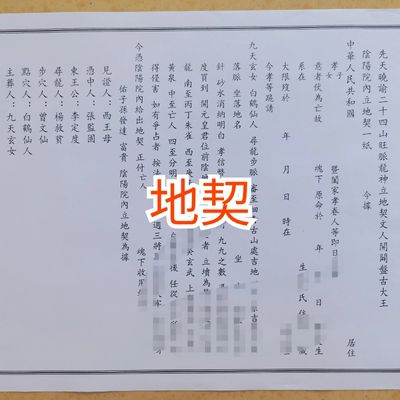 先天曉諭二十四山旺脈龍神立地契文人開闢盤古大王
陰陽院內立地契一紙 今據
中華人民共和國 居住
孝子
孝女 暨闔家孝眷人等即日
意者伏為亡故 魂下原命於 年 日 生
系在 生 氏住
大限歿於 年 月 日 時在
今孝等跪請
九天玄女 白鶴仙人 尋龍步脈 審至 古山處吉地
落脈 坐落地名 坐
針 砂水消納明白 孝信 九九之數
度買到 開元皇君位前陰地 者 立墳為
龍 南至丙丁朱雀 西至 玄武 上
黃泉 中至亡人 四至分明 後 任從
得侵害 如有爭占者 按法 週三將
今憑陰陽院內給出地契 正付亡人 魂下收
佑子孫發達 富貴 陰陽院內立地契為據
見證人：西王母
憑中人：張監固
東王公：李定度
尋龍人：楊救貧
步穴人：曾文仙
點穴人：白鶴仙人
主葬人：九天玄女
地契